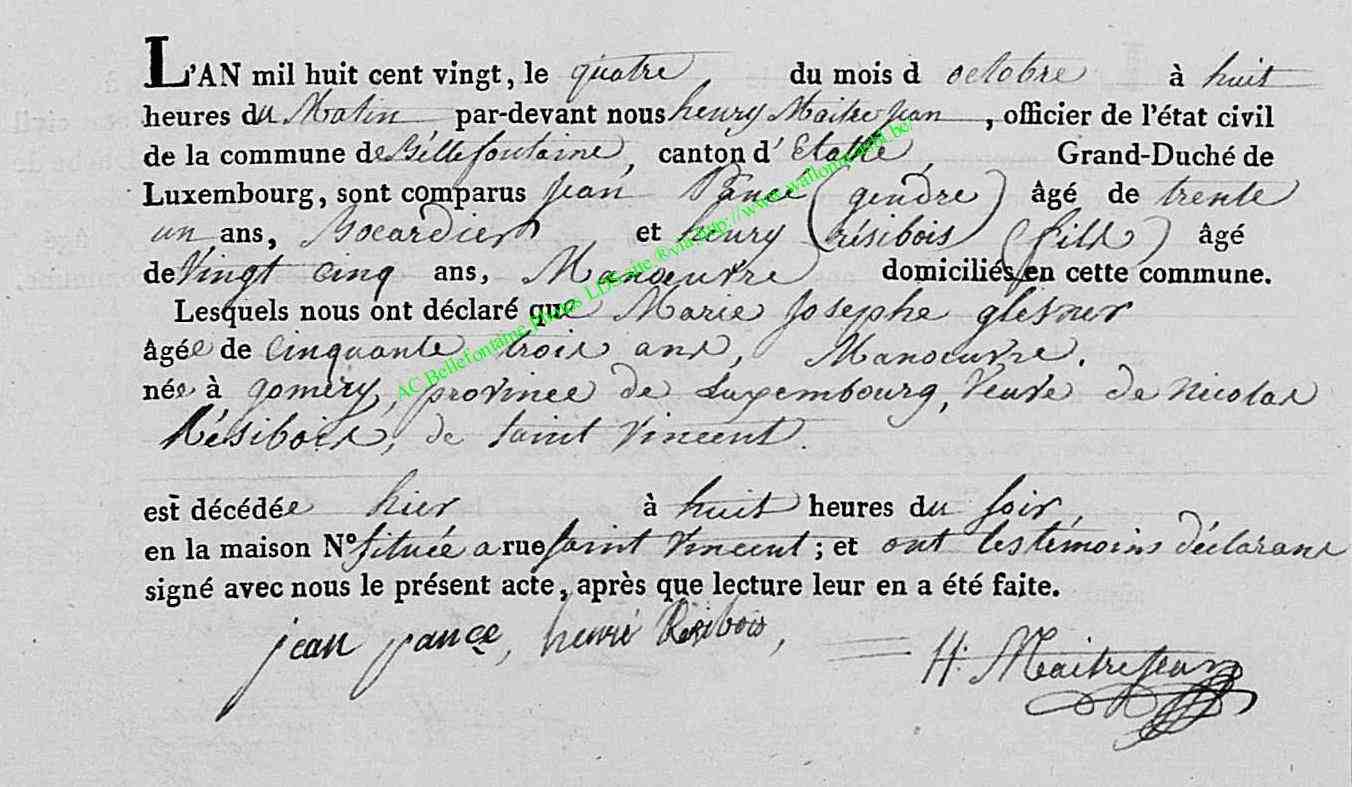 L'AN mil huit cent vingt, le quatre du mois d octobre à huit
heures du Matin par-devant nous henry Maitrejean, officier de l'état civil
de la commune de Bellefontaine, canton d'Etalle, Grand-Duché de
Luxembourg, sont comparus jean Pancé (gendre) âgé de trente
un ans, Bocardier et henry Résibois (fils) âgé
de Vingt cinq ans, Manoeuvre domiciliés en cette commune.
Lesquels nous ont déclaré que Marie Josephe glesner
âgée de Cinquante trois ans, Manoeuvre.
née à gomery, province de Luxembourg, Veuve de Nicolas
Résibois, de Saint Vincent.
est décédée hier à huit heures du soir,
en la maison N° située a rue Saint Vincent; et ont les témoins déclarans
signé avec nous le présent acte, après que lecture leur en a été faite.
jean pance, henri Résibois, H. Maitrejean
AC Bellefontaine Photos LDS site ®via http://www.wallonica.be/